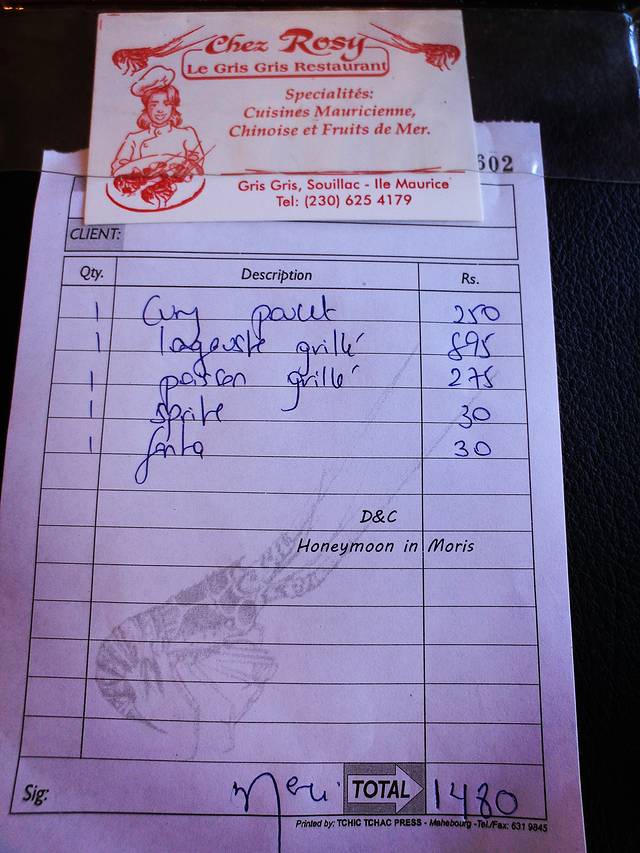 Chez Rosy
Le Gris Gris Restaurant
Specialités:
Cuisines Mauricienne,
Chinoise et Fruits de Mer.
Gris Gris, Souillac - Ile Maurice
Tel: (230) 625 4179
602
CLIENT:
Qty. Description Rs.
1 Curry poulet 250
1 lagouste grillé 895
1 poisson grillé 275
1 sprite 30
1 fanta 30
D&C
Honeymoon in Moris
Sig: Merci TOTAL 1480
Printed by: TCHIC TCHAC PRESS - Mahebourg -Tel./Fax: 631 9845